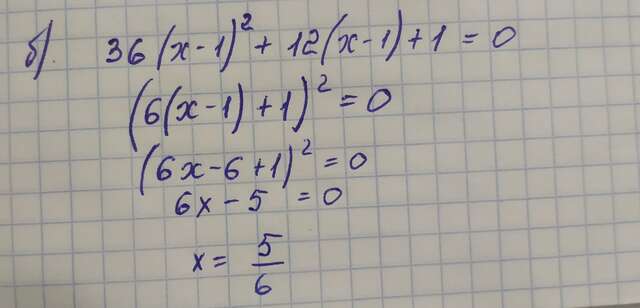 б). 36(x-1)² + 12(x-1)+1 = 0
(6(x-1)+1)² = 0
(6x-6+1)² = 0
6x-5 = 0
x = 5/6